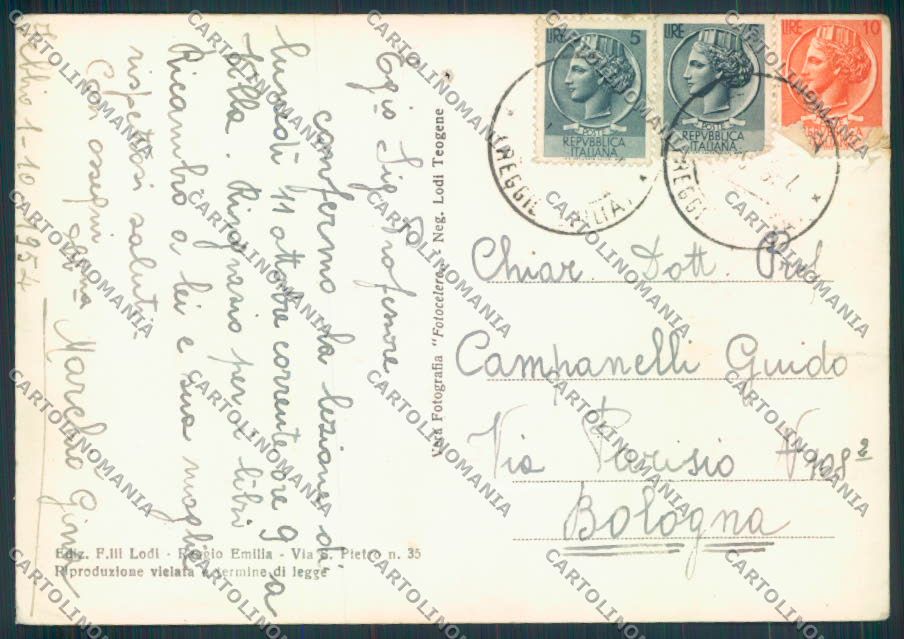 LIRE 5
POSTE
REPVBBLICA
ITALIANA
LIRE 5
POSTE
REPVBBLICA
ITALIANA
LIRE 10
REGGIO
REGGIO
Egio Sig Professore
confermo la lezione di
lunedì 11 ottobre corrente ore 9 a
Villa. Ringrazio per i libri
Ricambio a lei e sua moglie
rispettosi saluti.
Con ossequi
Marchio Gina
1-10-1954
Vera Fotografia "Fotocelere" - Neg. Lodi Teogene
Chiar. Dott. Prof
Campanelli Guido
Via Parisio N 108 2
Bologna
Ediz. F.lli Lodi - Reggio Emilia - Via S. Pietro n. 35
Riproduzione vietata a termine di legge
CARTOLINOMANIA